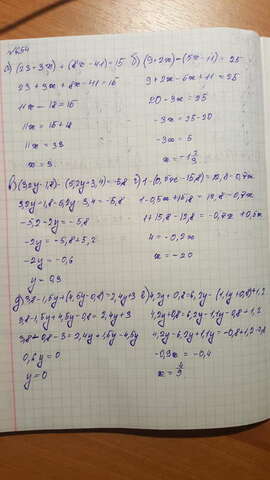 №654
а) (23+3x)+(8x-41)=15
23+3x+8x-41=15
11x-18=15
11x=15+18
11x=33
x=3
б) (9+2x)-(5x-11)=25
20-3x=25
-3x=25-20
-3x=5
x=-1 2/3
в) (3,2y-1,8)-(5,2y+3,4)=-5,8
3,2y-1,8-5,2y-3,4=-5,8
-5,2-2y=-5,8
-2y=-5,8+5,2
-2y=-0,6
y=0,3
г) 1-(0,5x-15,8)=12,8-0,7x
1-0,5x+15,8=12,8-0,7x
1+15,8-12,8=-0,7x+0,5x
4=-0,2x
x=-20
д) 3,8-1,5y+(4,5y-0,8)=2,4y+3
3,8-1,5y+4,5y-0,8=2,4y+3
0,6y=0
y=0
е) 4,2y+0,8=6,2y-(1,1y+0,8)+1,2
4,2y+0,8=6,2y-1,1y-0,8+1,2
4,2y-6,2y+1,1y=-0,8+1,2-0,8
-0,9x=-0,4
x=4/9